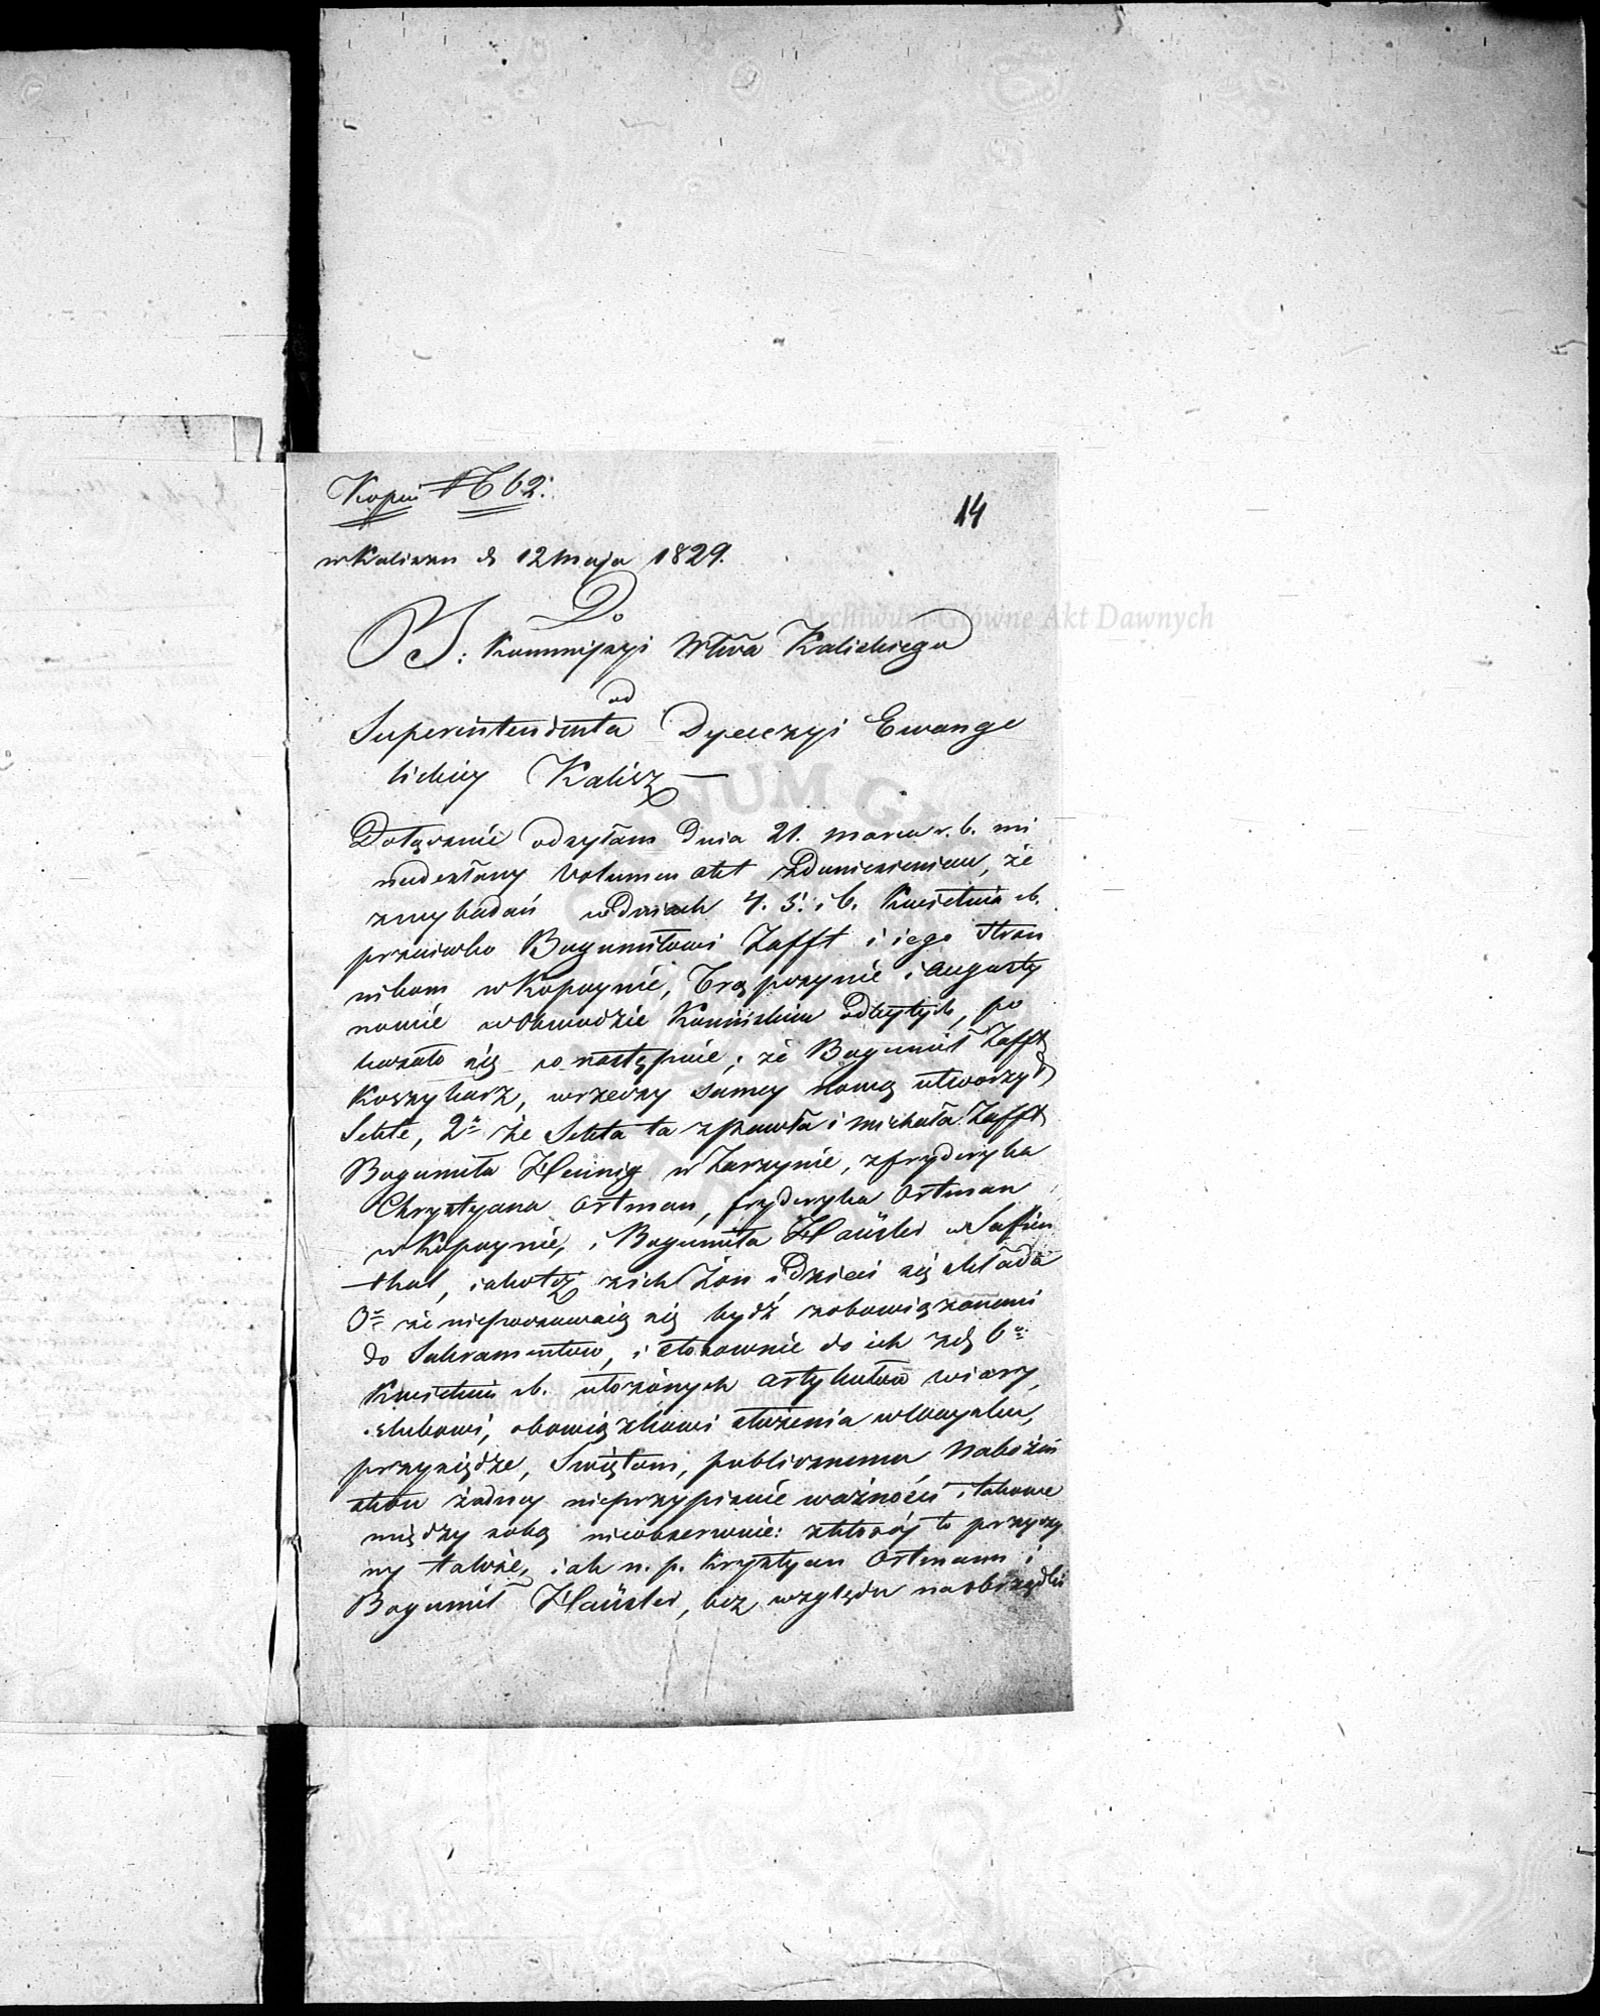 Kopia № 62.
14
w Kaliszu d 12 Maja 1829.
Do
P: Kommissyi Wttwa Kaliskiego
od
Superintendenta Dyecezyi Ewange
lickiey Kalisz
Archiwum Główne Akt Dawnych
Dołącznie odsyłam Dnia 21. marca r. b. mi
nadesłany Volumen akt z Doniesieniem, że
z wybadań w Dniach 4. 5. i 6. Kwietnia rb.
przeciwko Bogumiłowi Zafft i iego stron
nikom w Kopoynie, Trąpczynie i Augusty
nowie w Obwodzie Konińskim odbytych, po
kazało się co następuie; że Bogumił Zafft
Koszykarz, w rzeczy samey nową utworzył
Sektę, 2° że Sekta ta z Pawła i Michała Zafft
Bogumiła Hennig w Zarzynie, z fryderyka
Chrystyana Ortman, fryderyka Ortman
w Kopoynie, i Bogumiła Haüsler w Safien
thal, iakoteż z ich Żon i Dzieci się składa
3° że niepoczuwaią się bydź zobowiązanemi
do Sakramentów, i stosownie do ich z d 6°
Kwietnia rb. ułożonych artykułów wiary,
ślubowi, obowiązkowi służenia w Woysku,
przysiędze, Świętom, publicznemu Nabożeń
stwu żadney nieprzypisuie ważności i takowe
między sobą nieobserwuie: z którey to przyczy
ny także, iak n. p. Krystyan Ortmann i
Bogumił Haüsler, bez względu na obrządki